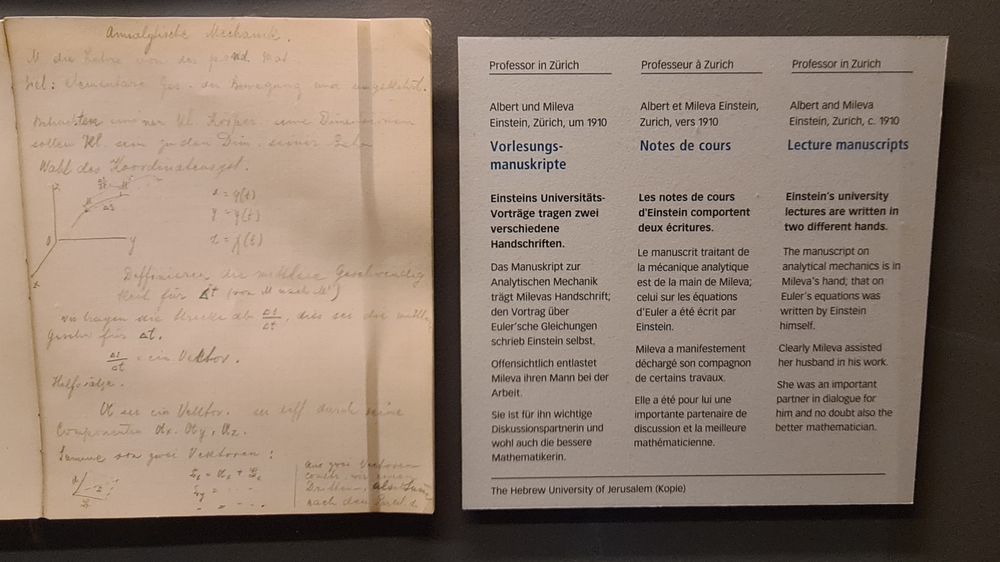 Annalytische Mechanik.
M die Lehre von der
Ziel: Elementare Ges. der Bewegung und umgekehrt.
kl. Körper. Dimensionen
sollen kl. sein zu den Dim. seiner Bahn
Wahl des Koordinatensyst.
z
M M'
Δs
x = φ(t)
y = ψ(t)
0 y
z = f(t)
x
Deffinieren die mittlere Geschwindig
keit für Δt (von M nach M')
wir tragen die Strecke ab Δs/Δt, dies sei die mittl.
Geschw für Δt.
Δs/Δt = ein Vektor.
Hilfsätze.
A sei ein Vektor. durch seine
Componenten Ax. Ay, Az.
Summe von zwei Vektoren:
Aus zwei Vektoren
Professor in Zürich
Albert und Mileva
Einstein, Zürich, um 1910
Vorlesungs-
manuskripte
Einsteins Universitäts-
Vorträge tragen zwei
verschiedene
Handschriften.
Das Manuskript zur
Analytischen Mechanik
trägt Milevas Handschrift;
den Vortrag über
Euler'sche Gleichungen
schrieb Einstein selbst.
Offensichtlich entlastet
Mileva ihren Mann bei der
Arbeit.
Sie ist für ihn wichtige
Diskussionspartnerin und
wohl auch die bessere
Mathematikerin.
Professeur à Zurich
Albert et Mileva Einstein,
Zurich, vers 1910
Notes de cours
Les notes de cours
d'Einstein comportent
deux écritures.
Le manuscrit traitant de
la mécanique analytique
est de la main de Mileva;
celui sur les équations
d'Euler a été écrit par
Einstein.
Mileva a manifestement
déchargé son compagnon
de certains travaux.
Elle a été pour lui une
importante partenaire de
discussion et la meilleure
mathématicienne.
Professor in Zurich
Albert and Mileva
Einstein, Zurich, c. 1910
Lecture manuscripts
Einstein's university
lectures are written in
two different hands.
The manuscript on
analytical mechanics is in
Mileva's hand; that on
Euler's equations was
written by Einstein
himself.
Clearly Mileva assisted
her husband in his work.
She was an important
partner in dialogue for
him and no doubt also the
better mathematician.
The Hebrew University of Jerusalem (Kopie)